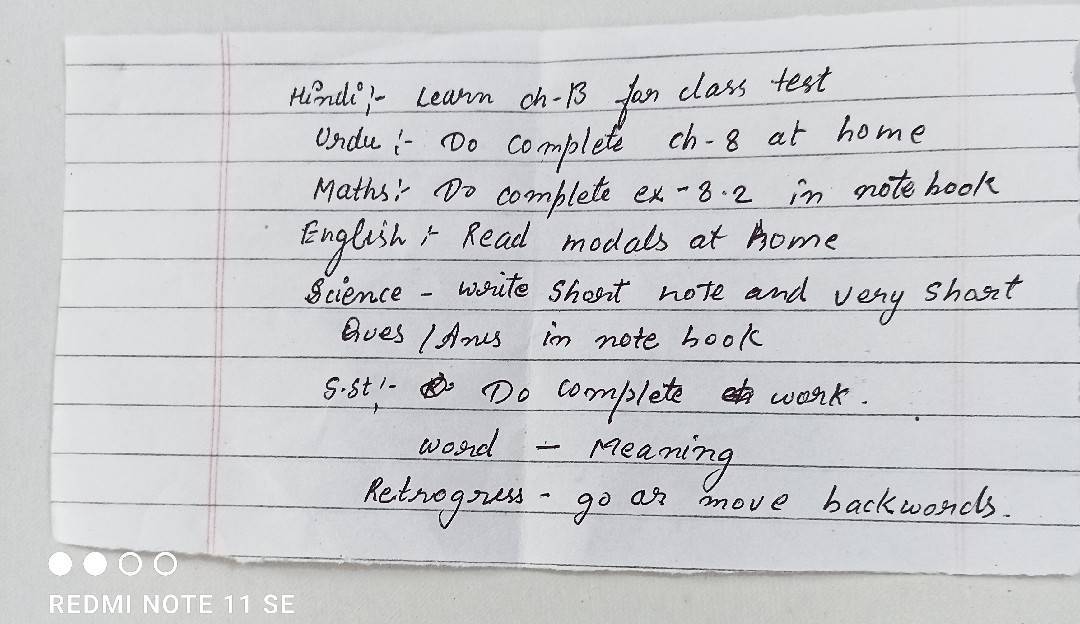 Hindi :- Learn ch-13 for class test
Urdu :- Do complete ch-8 at home
Maths :- Do complete ex-8.2 in note book
English :- Read modals at home
Science - write short note and very short
Ques / Ans in note book
S.st :- Do complete work.
word - Meaning
Retrogress - go or move backwords.
REDMI NOTE 11 SE